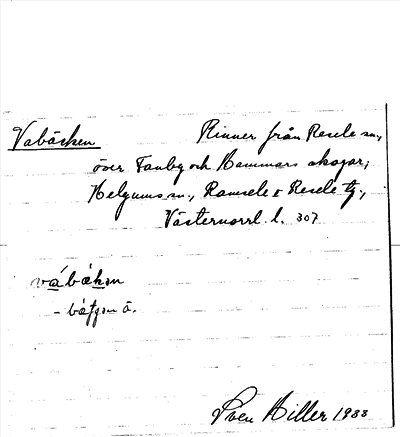 Vabäcken Rinner från Resele sn,
över Tanby och Hammars skogar;
Helgums sn, Ramsele o Resele tg,
Västernorrl. l. 307
vábäkən
Sven Hiller 1933